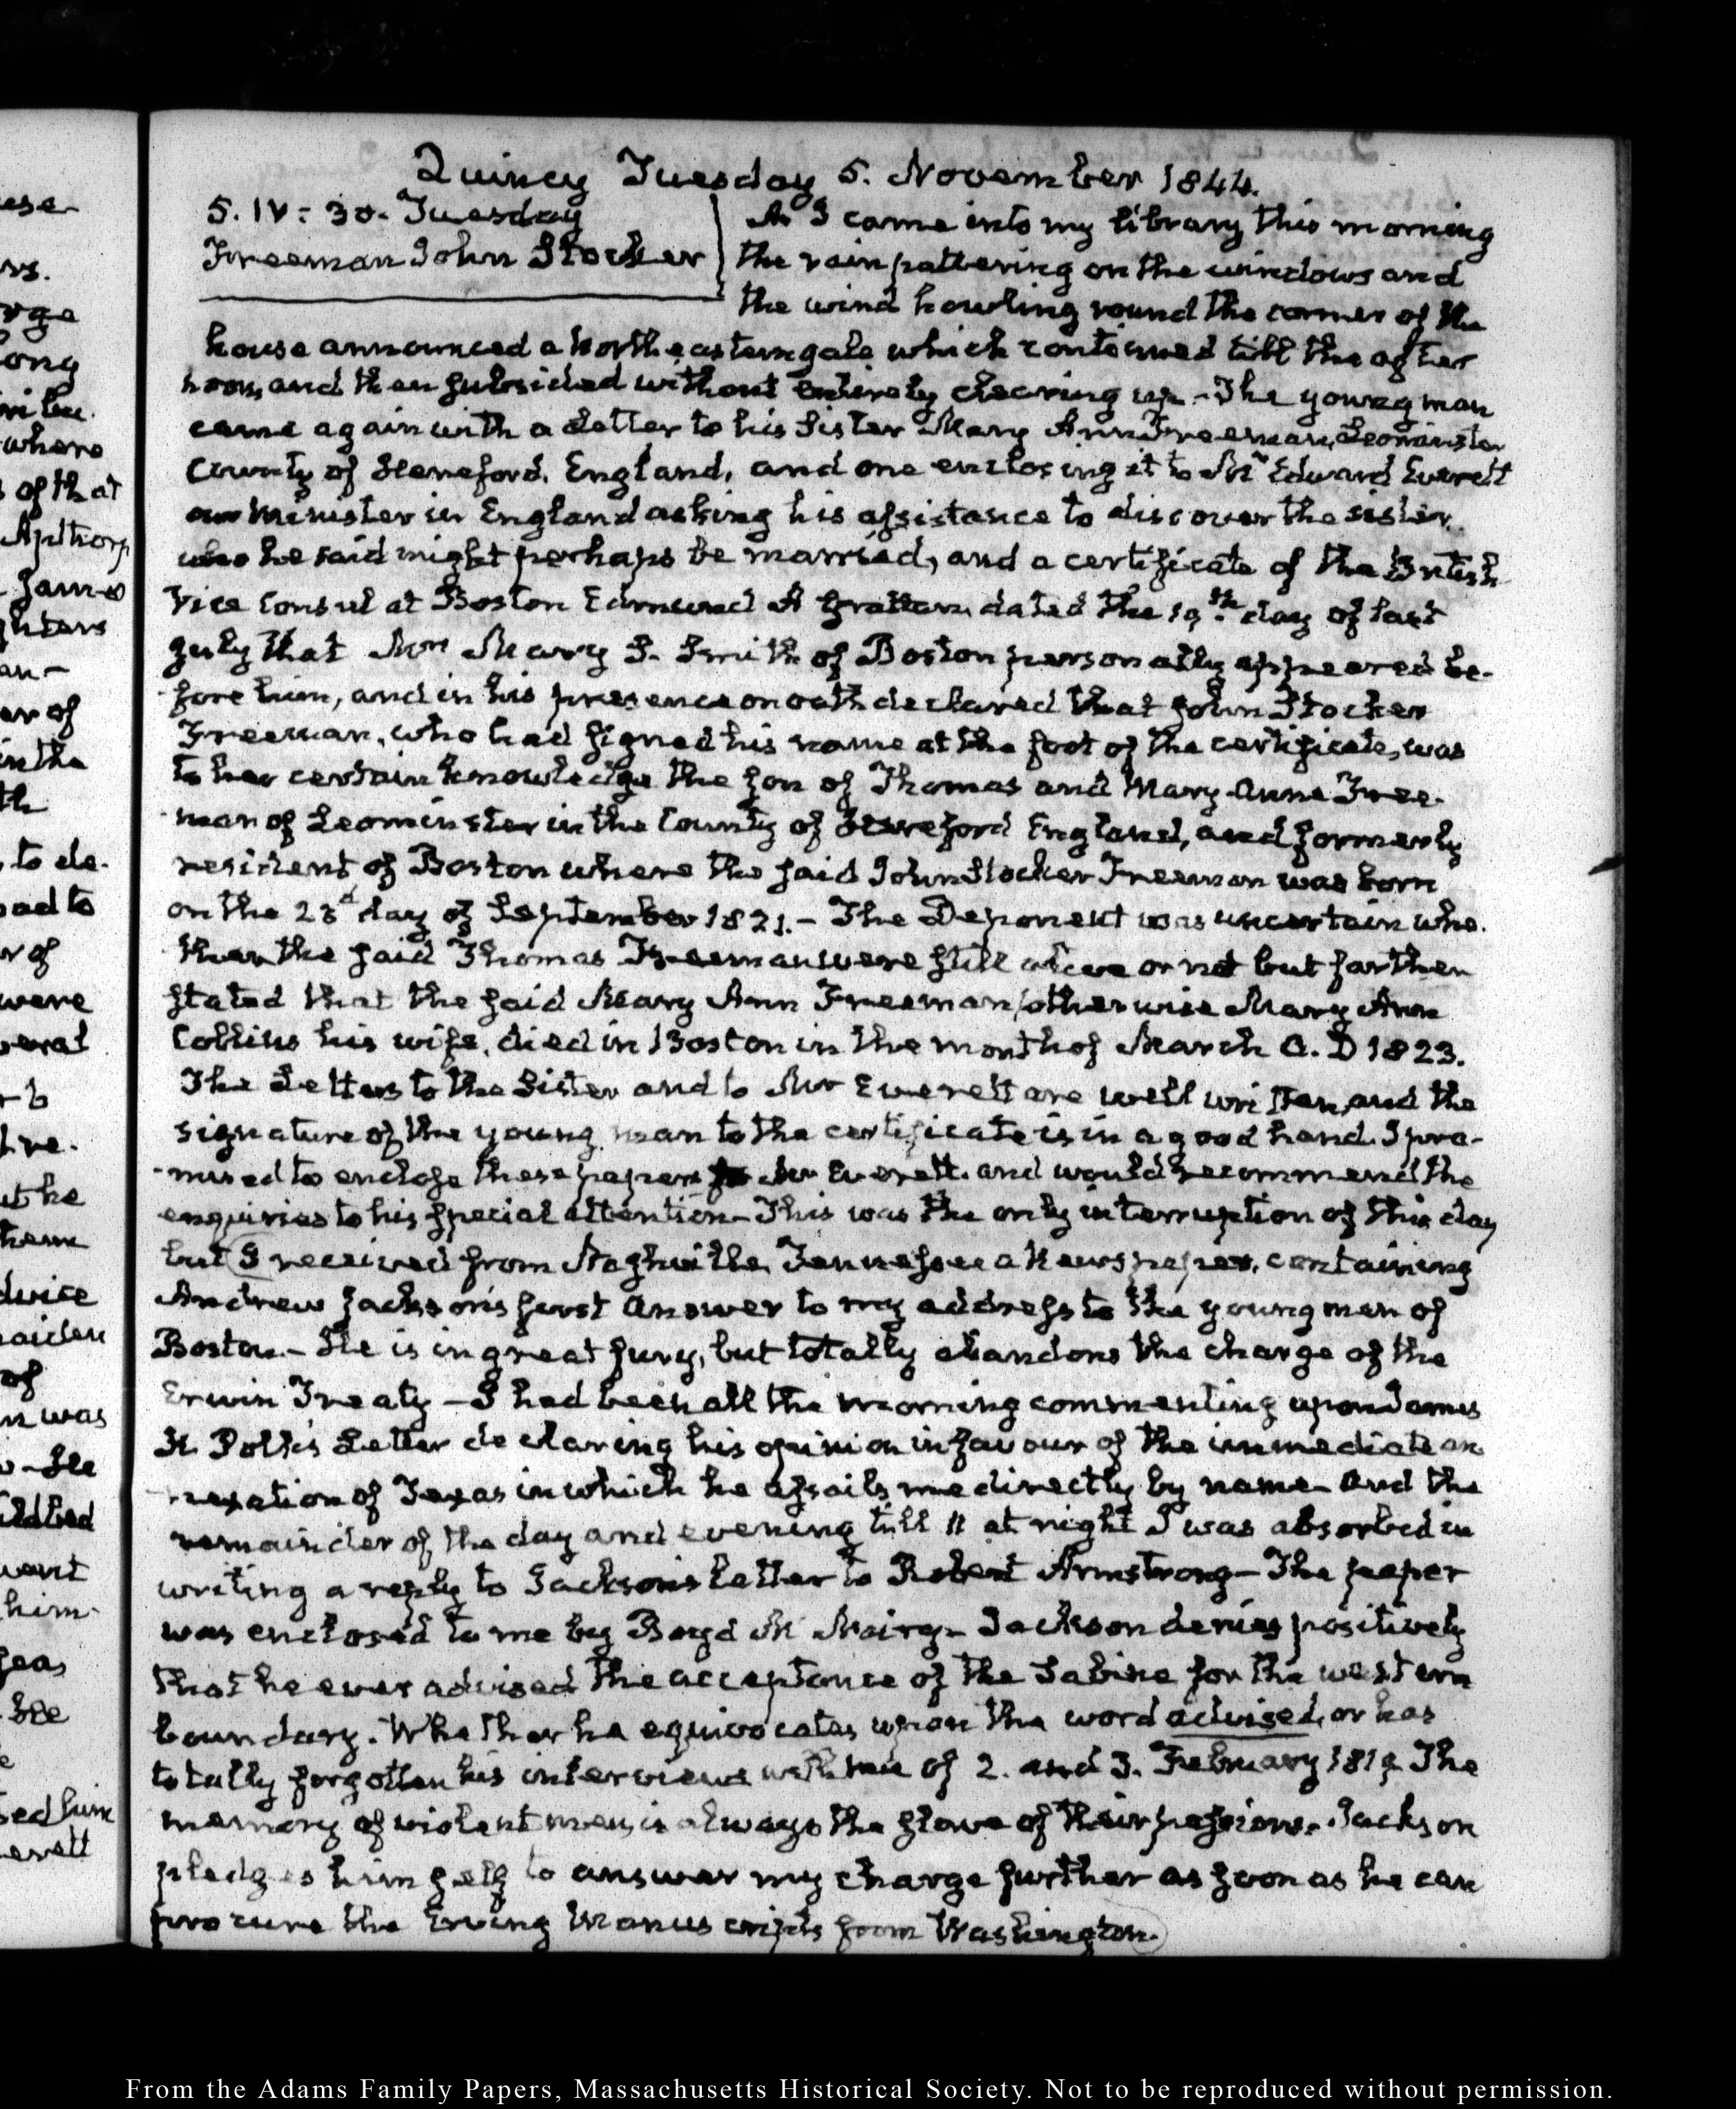 ese
Quincy Tuesday 5. November 1844.
5. IV: 30. Tuesday
Freeman John Stocker
As I came into my library this morning
the rain pattering on the windows and
the wind howling round the corner of the
house announced a North eastern gale which continued till the after
noon, and then subsided without entirely clearing up - The young man
came again with a Letter to his Sister Mary Ann Freeman, Leominster
County of Hereford. England, and one enclosing it to Mr Edward Everett
our Minister in England asking his assistance to discover the sister,
who he said might perhaps be married, and a certificate of the British
Vice Consul at Boston Edmund A Grattan, dated the 19th. day of last
July that Mrs Mary S. Smith of Boston personally appeared be-
fore him, and in his presence on oath declared that John Stocker
Freeman, who had signed his name at the foot of the certificate, was
to her certain knowledge the son of Thomas and Mary-Anne Free-
man of Leominster in the County of Hereford England, and formerly
resident of Boston where the said John Stocker Freeman was born
on the 23d day of September 1821. - The Deponent was uncertain whe-
ther the said Thomas Freeman were still alive or not but farther
stated that the said Mary Ann Freeman, otherwise Mary Ann
Collins his wife, died in Boston in the month of March A. D 1823.
The Letters to the Sister and to Mr Everett are well written, and the
signature of the young man to the certificate is in a good hand. I pro-
-mised to enclose these papers to Mr Everett. and would recommend the
enquiries to his special attention - This was the only interruption of this day
but I received from Nashville, Tennessee a Newspaper, containing
Andrew Jackson's first answer to my address to the young men of
Boston. - He is in great fury, but totally abandons the charge of the
Erwin Treaty - I had been all the morning commenting upon James
K. Polk's Letter declaring his opinion in favour of the immediate an
-nexation of Texas in which he assails me directly by name - and the
remainder of the day and evening till 11 at night I was absorbed in
writing a reply to Jackson's Letter to Robert Armstrong - The paper
was enclosed to me by Boyd Mc Nairy - Jackson denies positively
that he ever advised the acceptance of the Sabine for the western
boundary. Whether he equivocates upon the word advised, or has
totally forgotten his interviews with me of 2. and 3. February 1819. The
memory of violent men, is always the slave of their passions. Jackson
pledges himself to answer my charge further as soon as he can
procure the Erving Manuscripts from Washington.
From the Adams Family Papers, Massachusetts Historical Society. Not to be reproduced without permission.